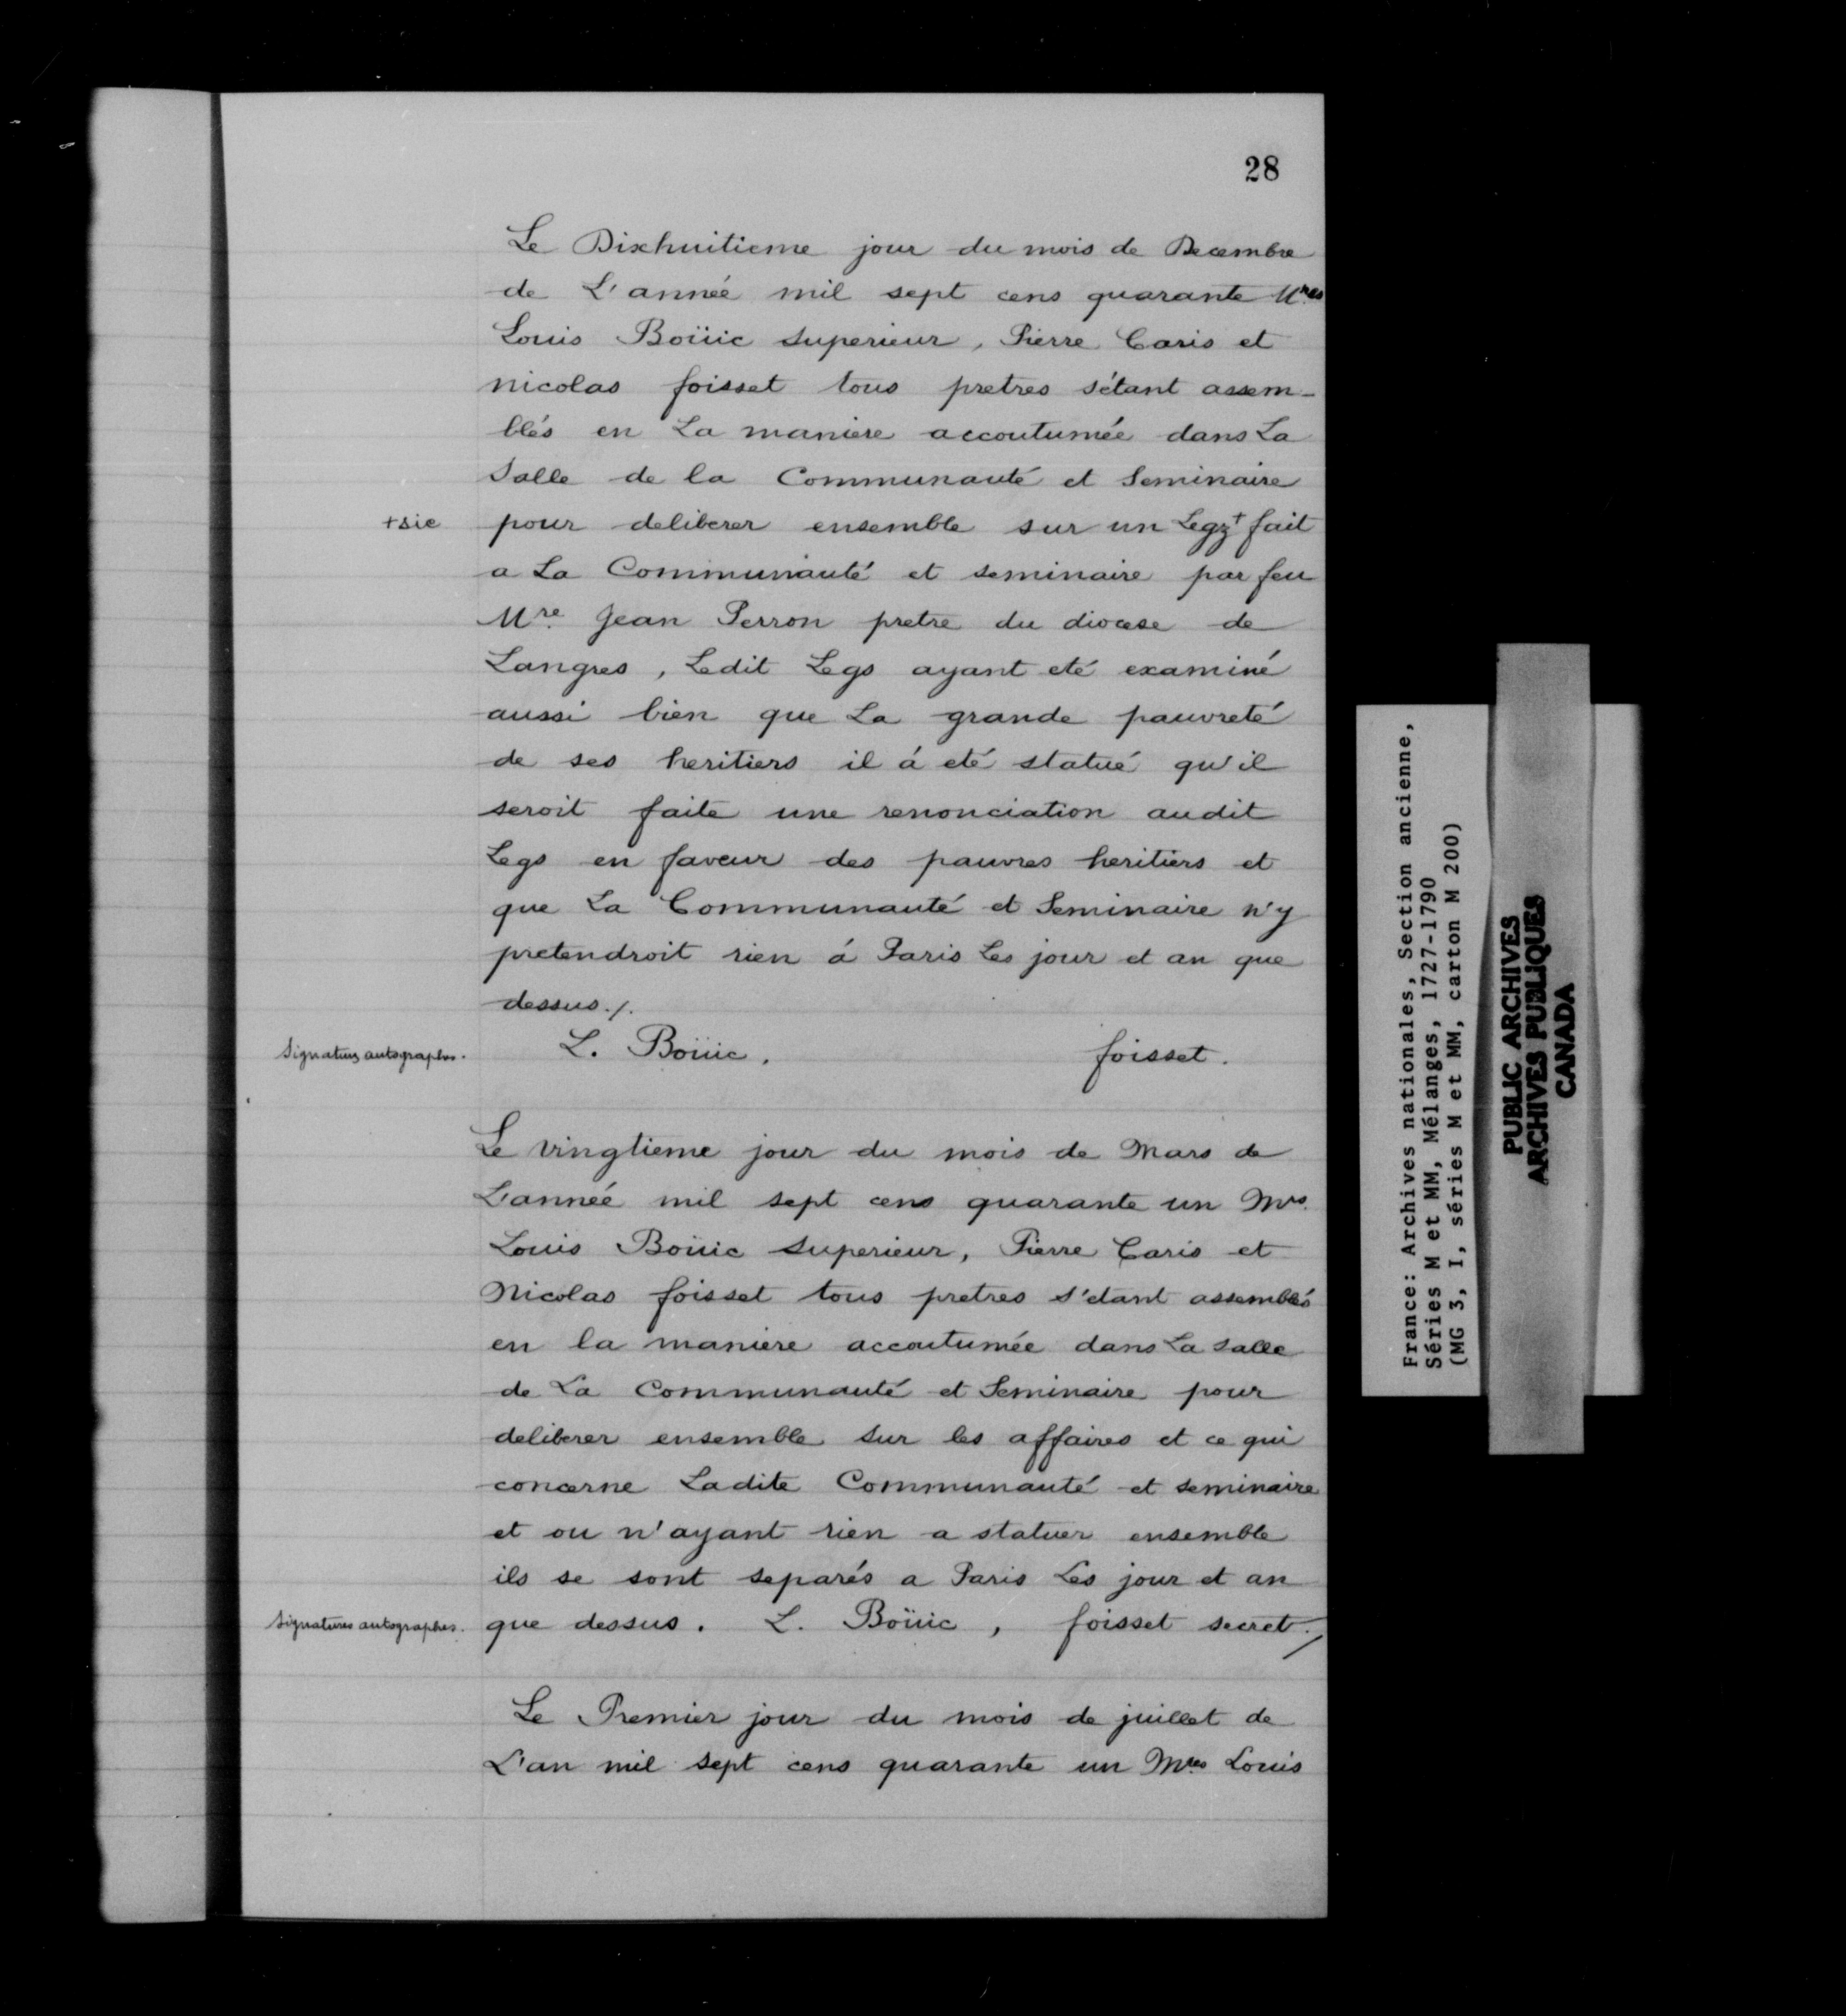 28
Le Dixhuitieme jour du mois de Decembre
de L'année mil sept cens quarante Mres
Louis Boüic superieur, Pierre Caris et
nicolas foisset tous pretres s'étant assem-
blés en La maniere accoutumée dans La
Salle de la Communauté et Seminaire
+ sic
pour deliberer ensemble sur un Legz+ fait
a La Communauté et seminaire par feu
Mre. Jean Perron pretre du diocese de
Langres, Ledit Legs ayant eté examiné
aussi bien que La grande pauvreté
de ses heritiers il á eté statué qu'il
seroit faite une renonciation audit
Legs en faveur des pauvres heritiers et
que La Communauté et Seminaire n'y
pretendroit rien á Paris Les jour et an que
dessus./.
Signatures autographes.
L. Boüic. foisset.
Le vingtieme jour du mois de Mars de
L'année mil sept cens quarante un Mrs.
Louis Boüic superieur, Pierre Caris et
Nicolas foisset tous pretres s'etant assemblés
en la maniere accoutumée dans La salle
de La Communauté et Seminaire pour
deliberer ensemble sur les affaires et ce qui
concerne Ladite Communauté et seminaire
et ou n'ayant rien a statuer ensemble
ils se sont separés a Paris Les jour et an
Signatures autographes.
que dessus. L. Boüic, foisset secret./
Le Premier jour du mois de juillet de
L'an mil sept cens quarante un Mres Louis
France: Archives nationales, Section ancienne,
Séries M et MM, Mélanges, 1727-1790
(MG 3, I, séries M et MM, carton M 200)
PUBLIC ARCHIVES
ARCHIVES PUBLIQUES
CANADA